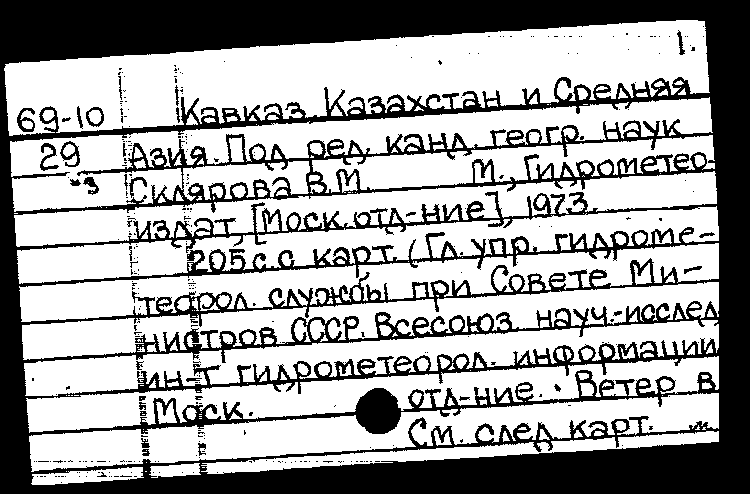 1.
69-10 Кавказ, Казахстан и Средняя
29 Азия. Под ред. канд. геогр. наук
-3 Склярова В.М. М., Гидрометео-
издат, [Моск. отд-ние], 1973.
205 с. с карт. (Гл. упр. гидроме-
теорол. службы при Совете Ми-
нистров СССР. Всесоюз. науч.-исслед
ин-т гидрометеорол. информации
Моск. отд-ние. Ветер в
См. след карт. м